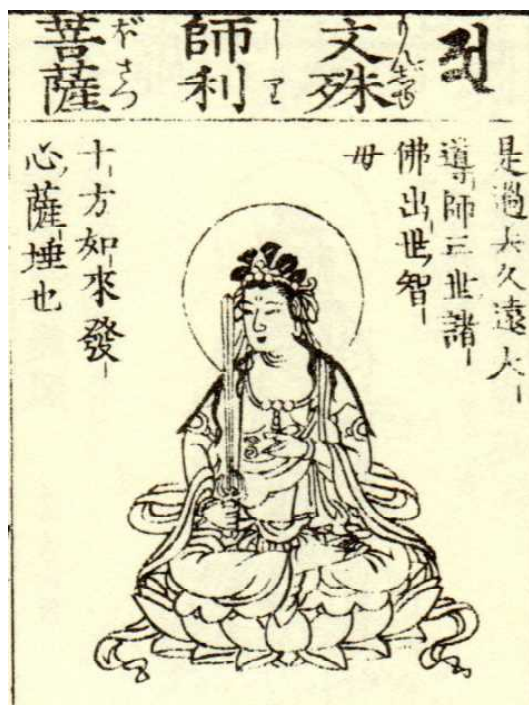 文殊
師利
しり
菩薩
ぼさつ
是過去久遠大
導師三世諸
佛出世智
母
十方如來發
心薩埵也